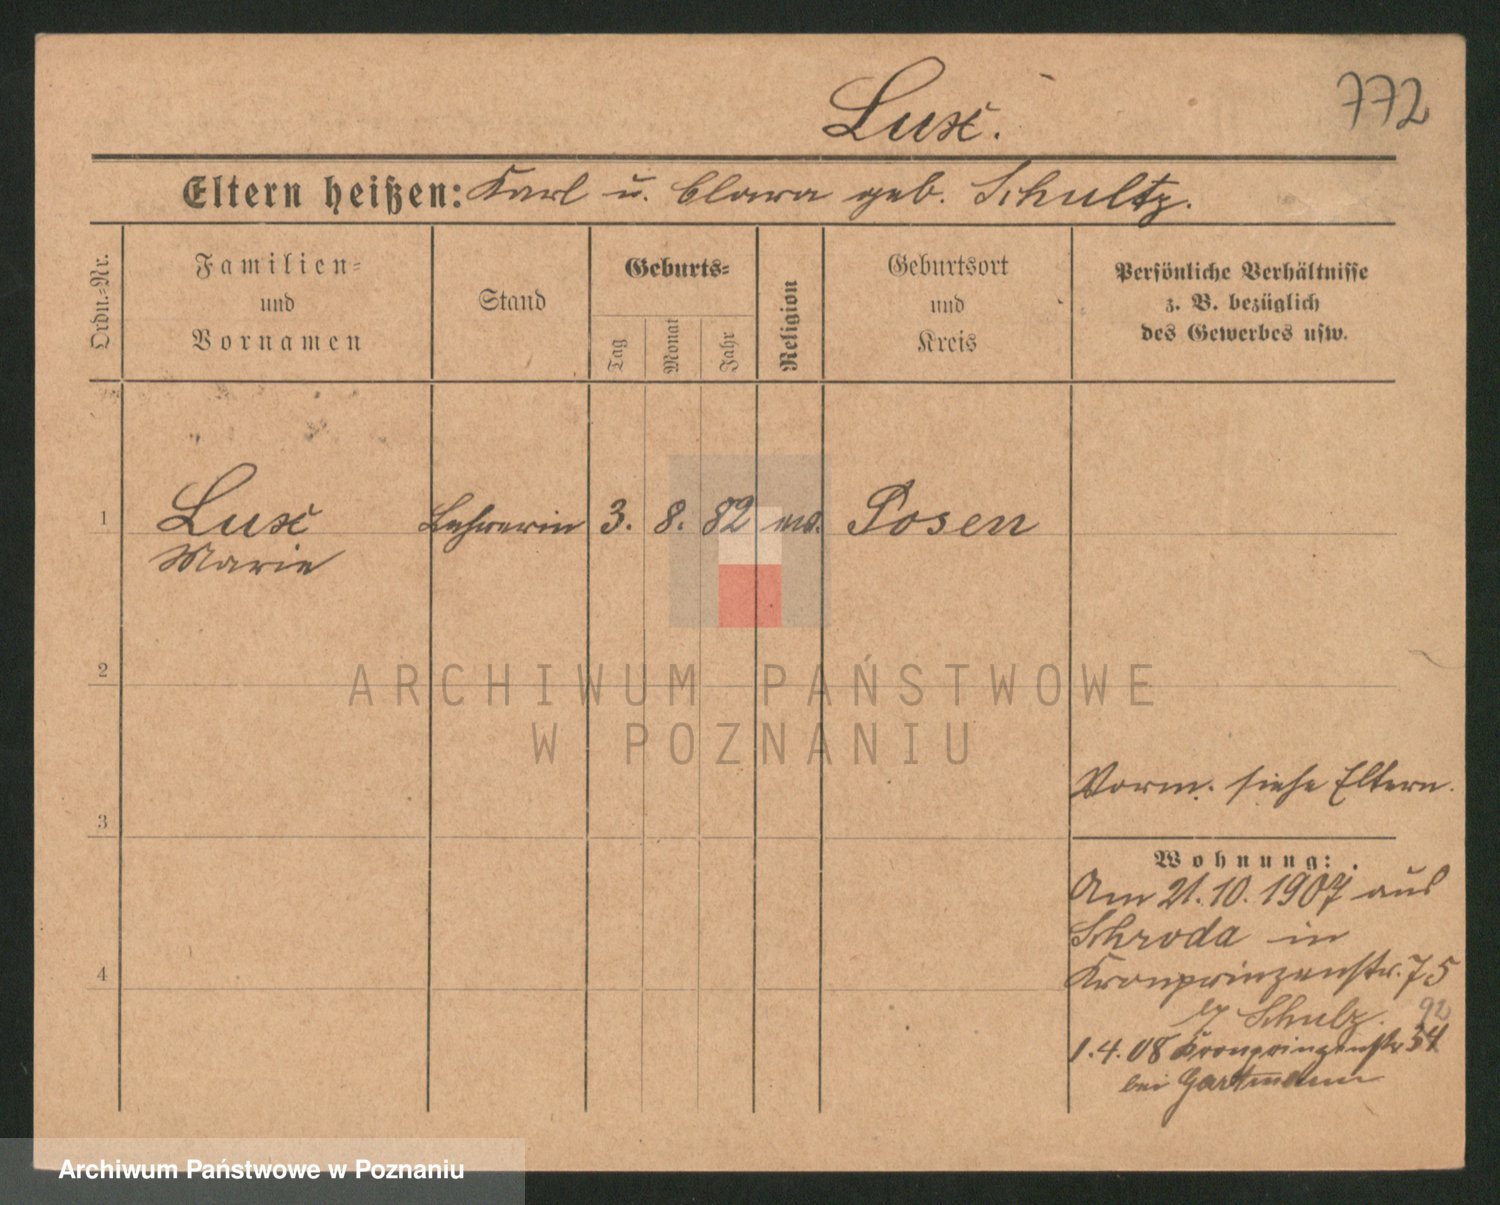 Lux.
772
Eltern heißen: Karl u. Clara geb. Schultz.
Ordn.-Nr.
Familien-
und
Vornamen
Stand
Geburts-
Tag
Monat
Jahr
Religion
Geburtsort
und
Kreis
Persönliche Verhältnisse
z. B. bezüglich
des Gewerbes usw.
1 Lux Lehrerin 3. 8. 82 ev. Posen
Marie
2
ARCHIWUM PAŃSTWOWE
W POZNANIU
Vorm. siehe Eltern.
3
Wohnung:
Am 21.10.1907 aus
Schroda in
4
Kronprinzenstr. 75
b/ Schulz. 92
1.4.08 Kronprinzenstr 54
bei Gartmann
Archiwum Państwowe w Poznaniu